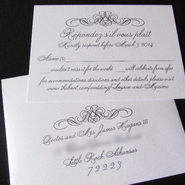 Répondez s'il vous plaît
Kindly respond before March 3, 2014
M
wouldn't miss it for the world will celebrate from afar
for accommodations directions and other details please visit
Doctor and Mrs. James Rogers III
Little Rock Arkansas
72223